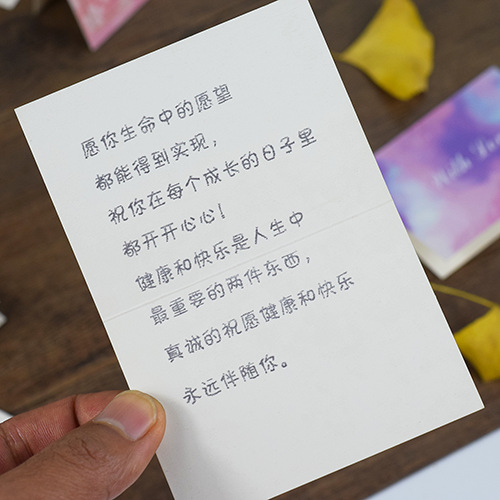 愿你生命中的愿望
都能得到实现，
祝你在每个成长的日子里
都开开心心！
健康和快乐是人生中
最重要的两件东西，
真诚的祝愿健康和快乐
永远伴随你。
With